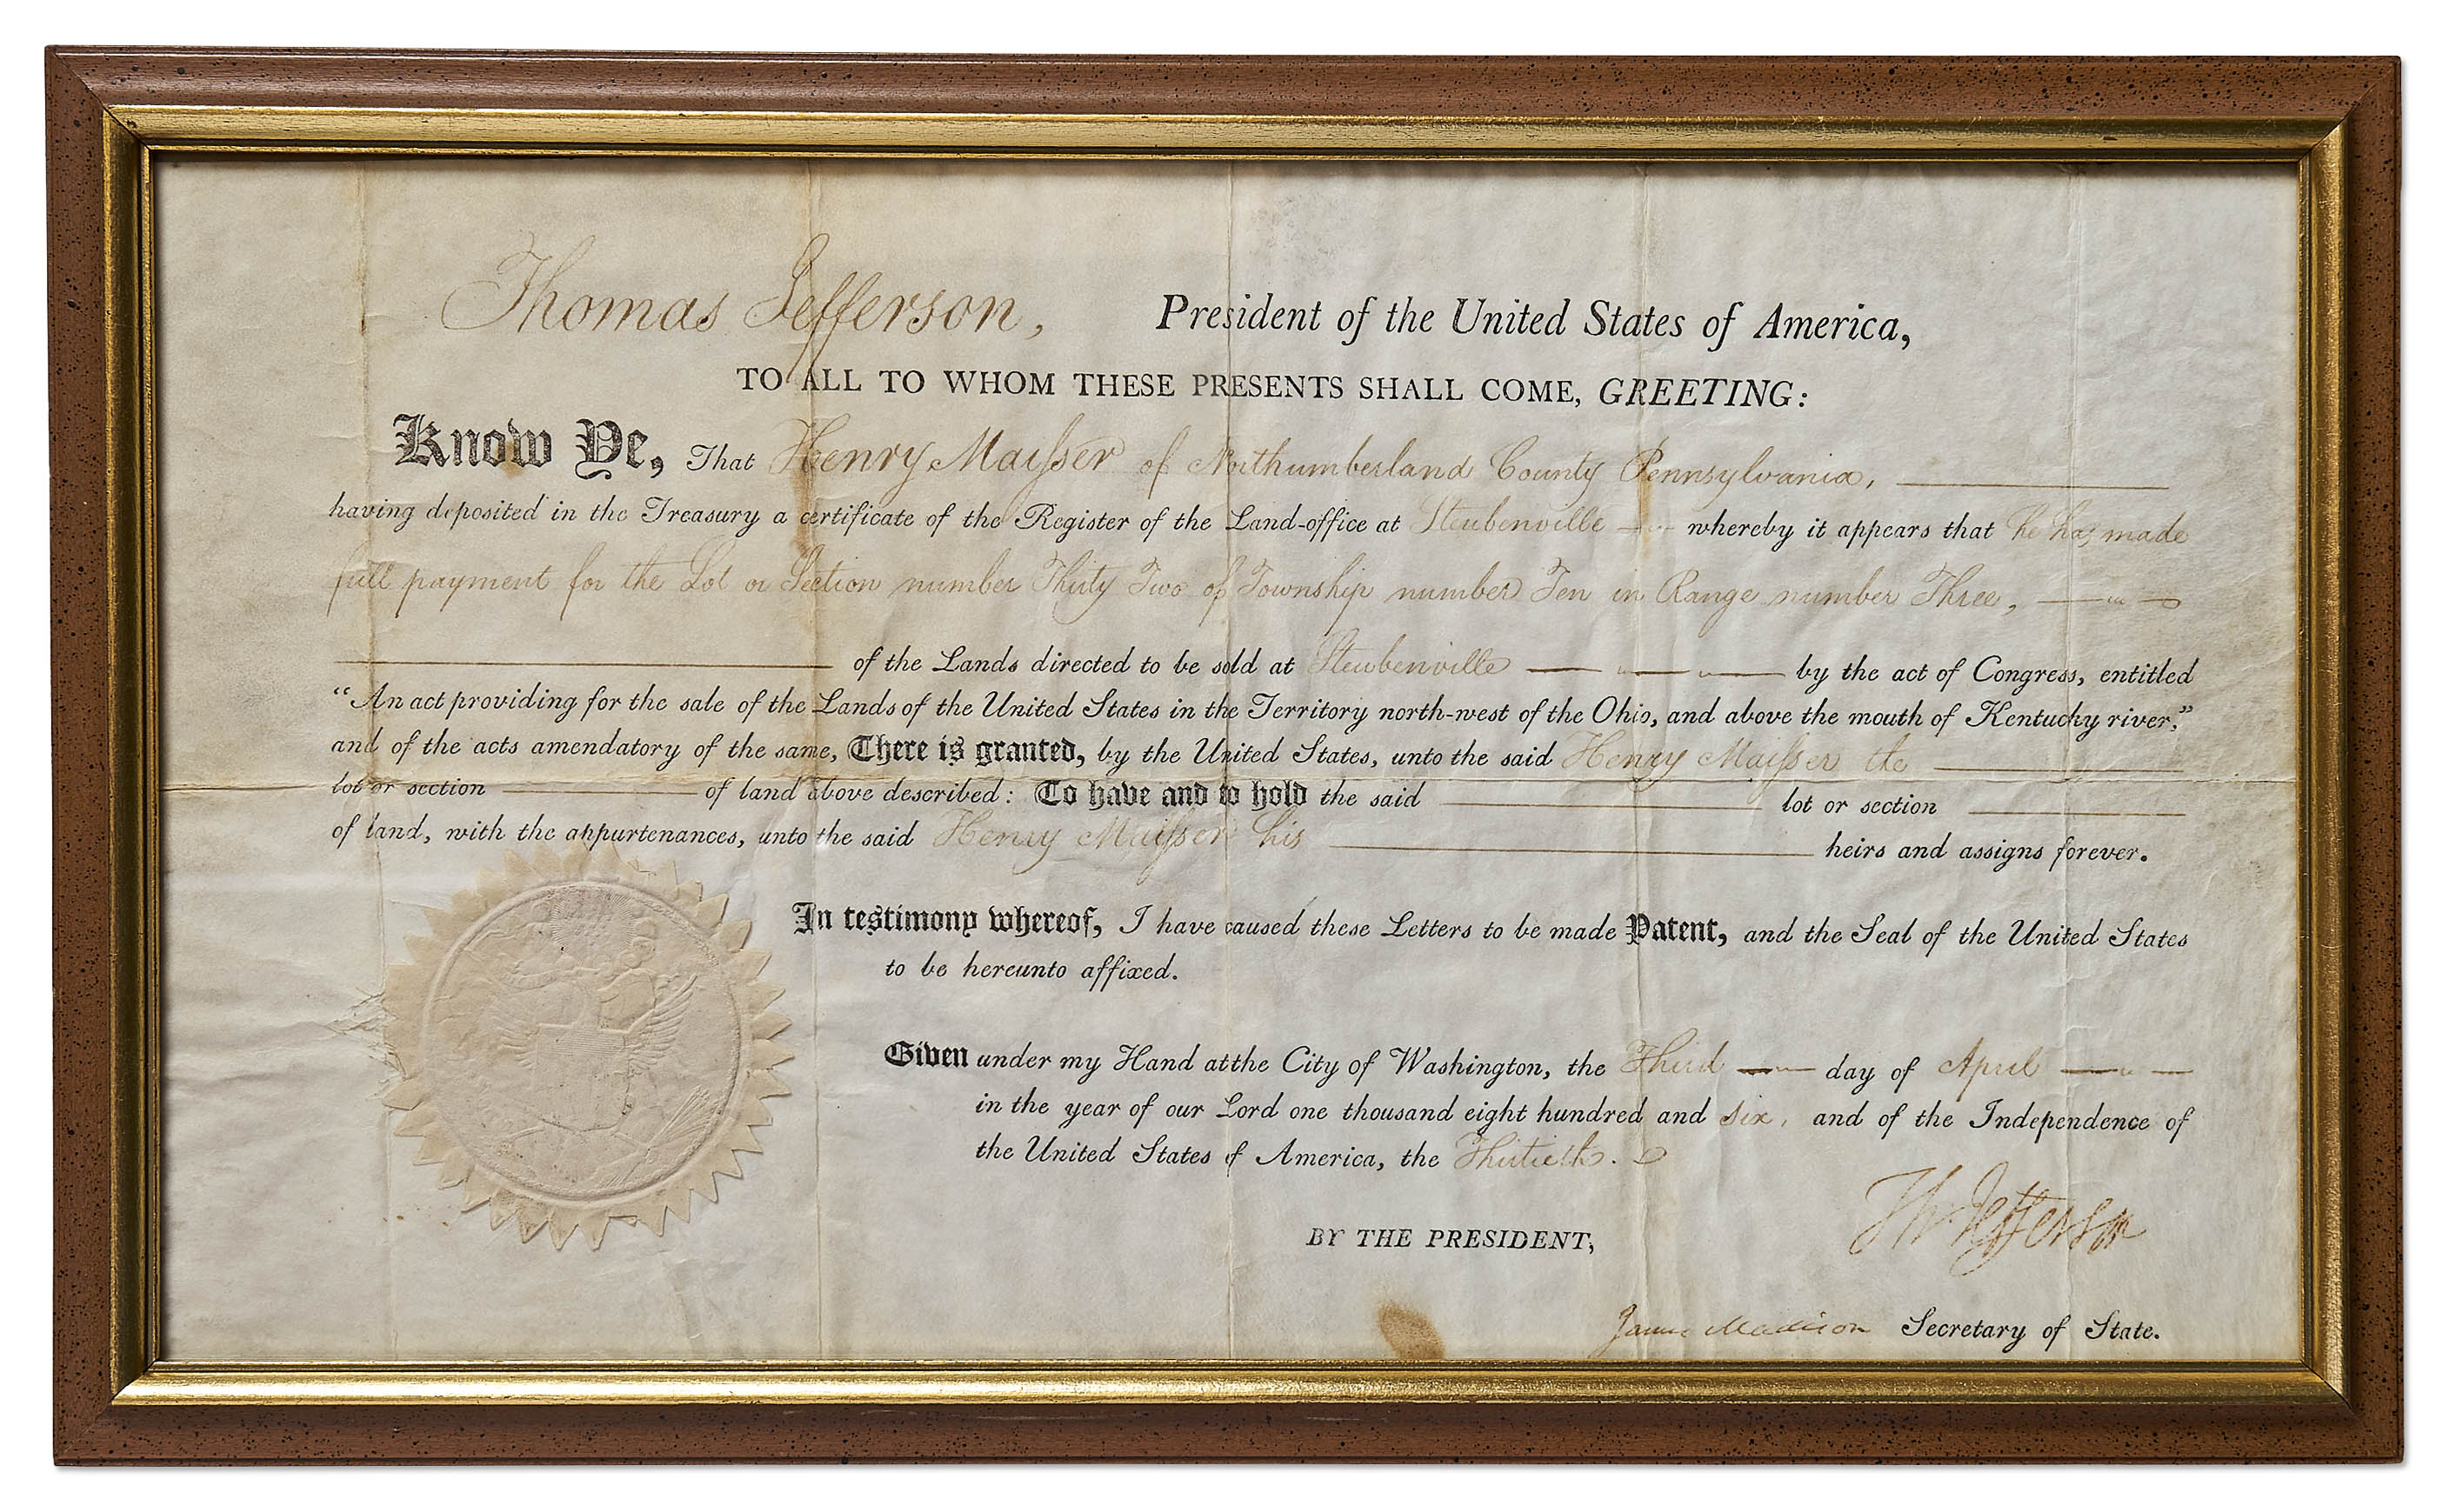 Thomas Jefferson, President of the United States of America,
TO ALL TO WHOM THESE PRESENTS SHALL COME, GREETING:
Know Ye, That Henry Maisser of Northumberland County Pennsylvania,
having deposited in the Treasury a certificate of the Register of the Land-office at Steubenville whereby it appears that he has made
full payment for the Lot or Section number Thirty Two of Township number Ten in Range number Three,
of the Lands directed to be sold at Steubenville by the act of Congress, entitled
“An act providing for the sale of the Lands of the United States in the Territory north-west of the Ohio, and above the mouth of Kentucky river,”
and of the acts amendatory of the same, There is granted, by the United States, unto the said Henry Maisser the
lot or section of land above described: To have and to hold the said lot or section
of land, with the appurtenances, unto the said Henry Maisser his heirs and assigns forever.
In testimony whereof, I have caused these Letters to be made Patent, and the Seal of the United States
to be hereunto affixed.
Given under my Hand at the City of Washington, the Third day of April
in the year of our Lord one thousand eight hundred and six, and of the Independence of
the United States of America, the Thirtieth.
Th Jefferson
BY THE PRESIDENT,
James Madison Secretary of State.